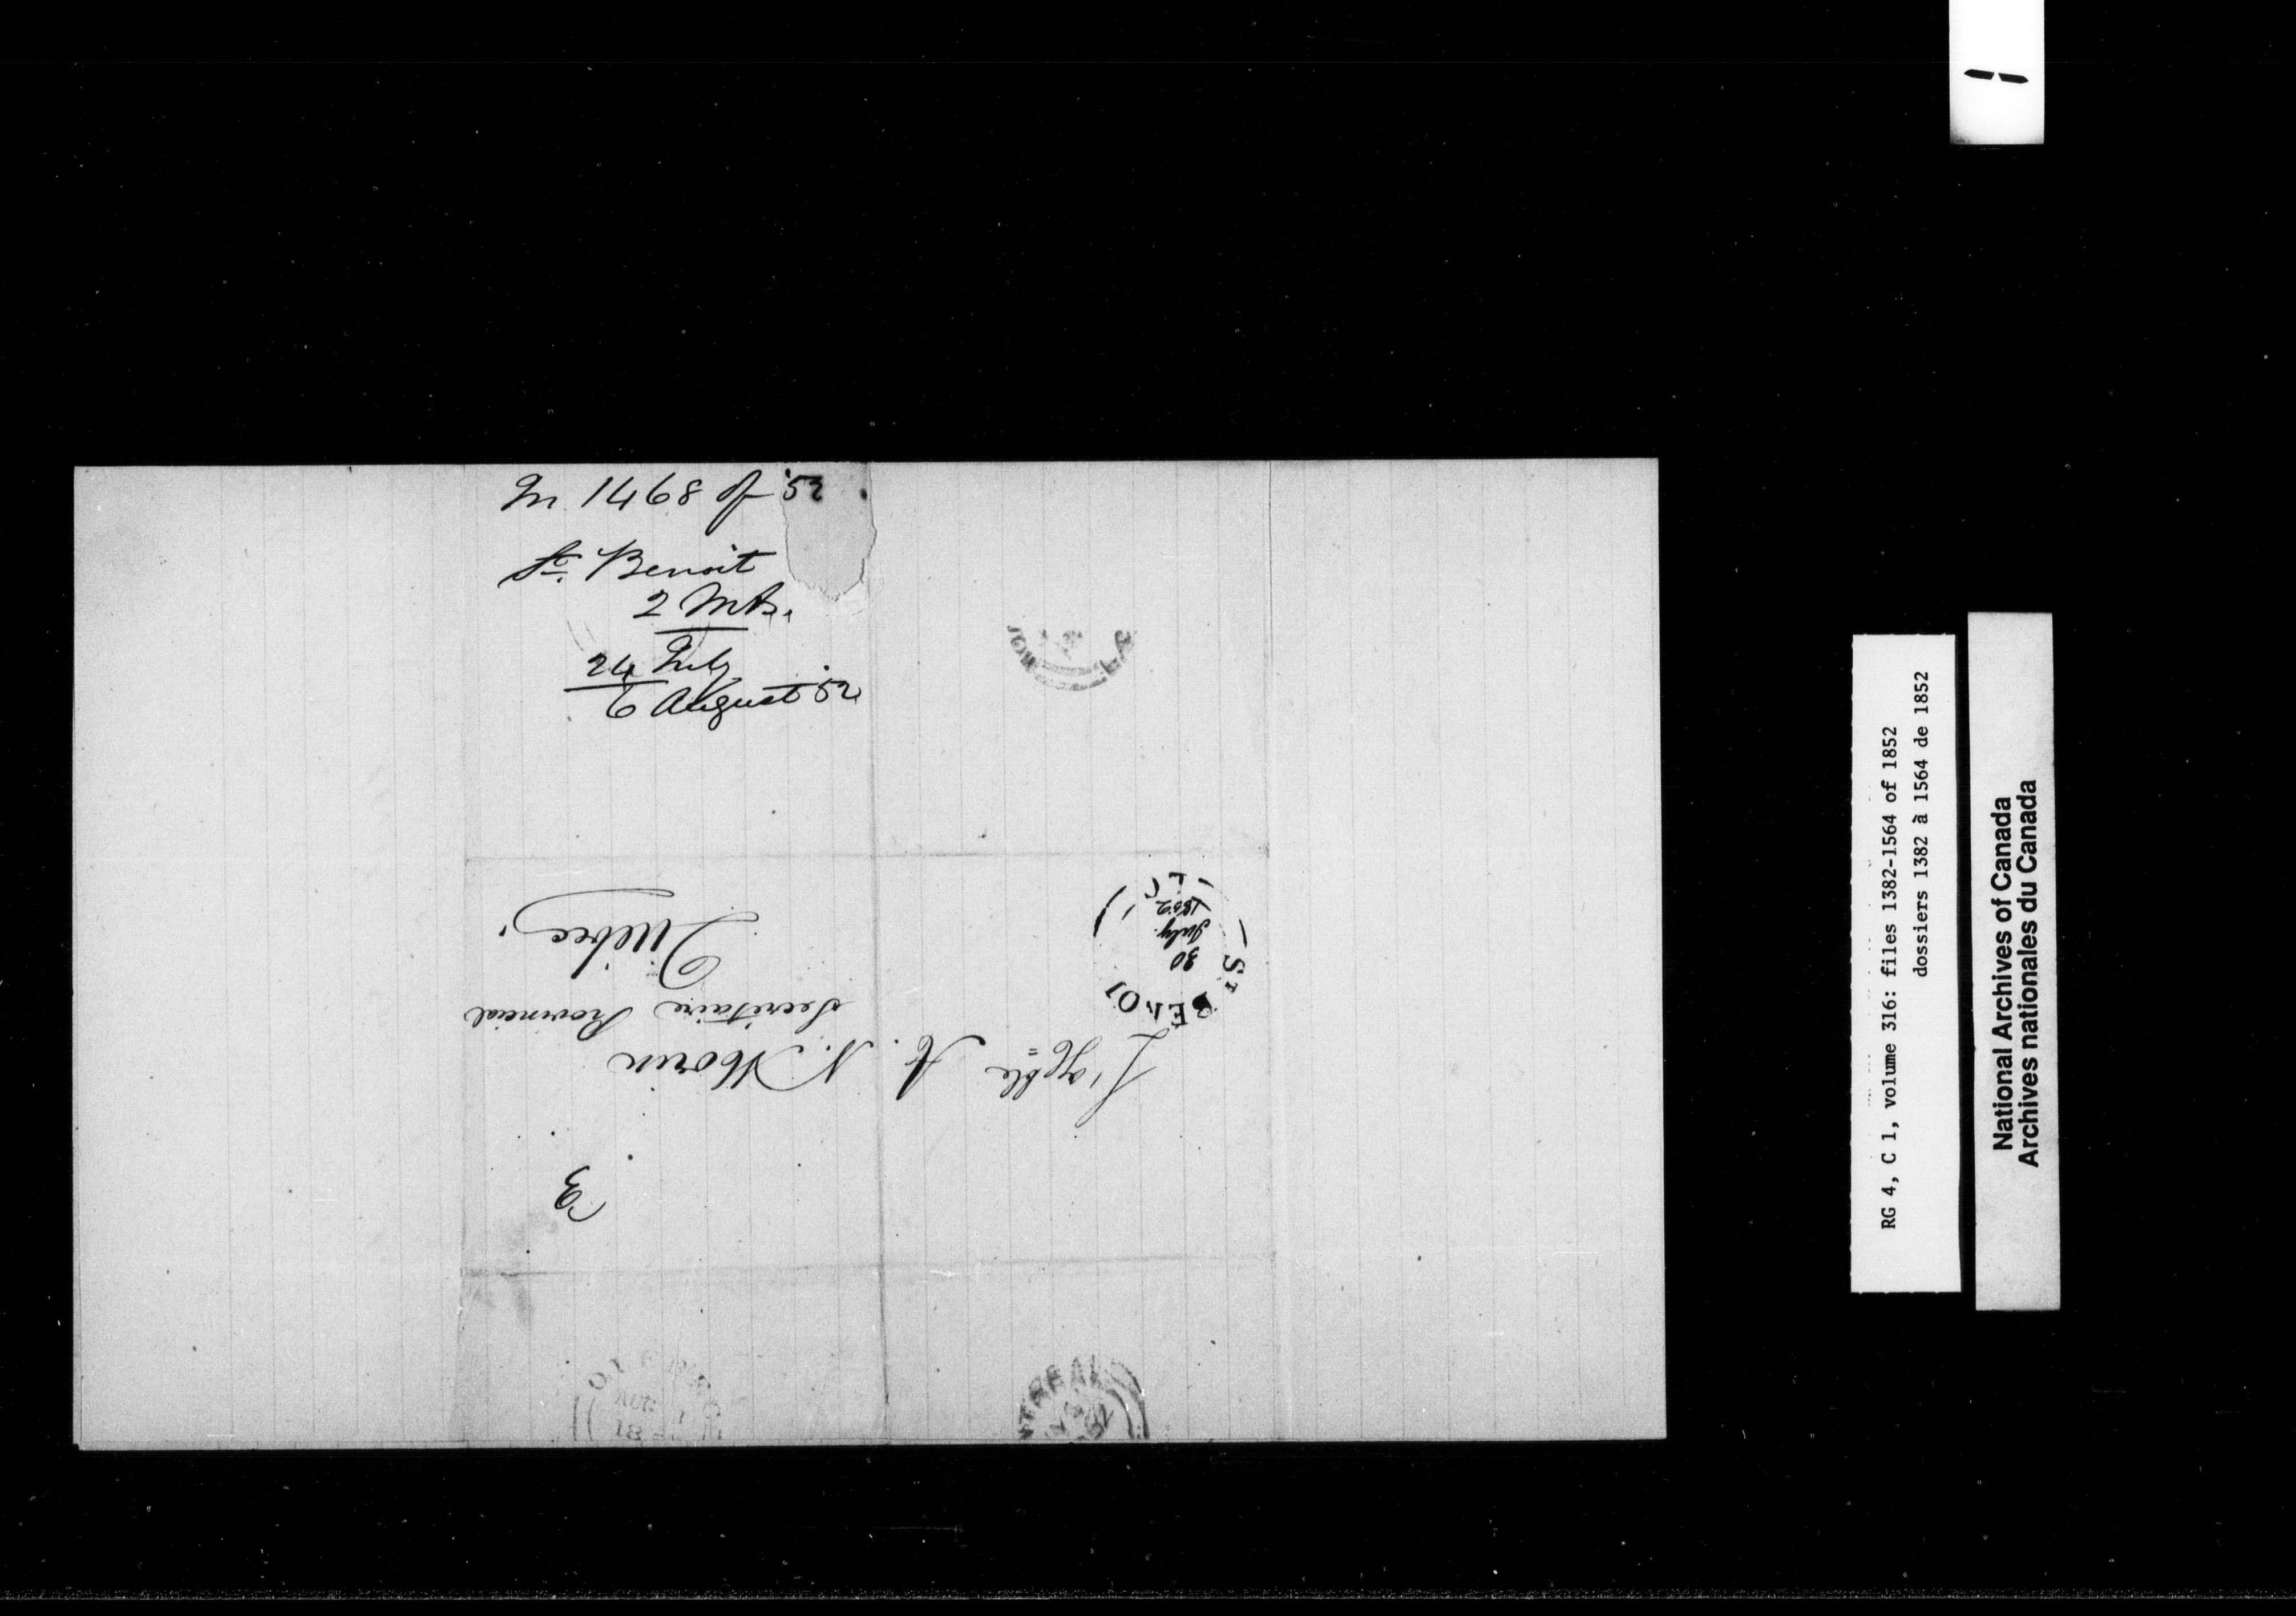 In 1468 of '52
St. Benoit
2 Mts.
24 July
6 August '52
L'hoble A. N. Morin
Secrétaire Provincial
Québec
3
ST BENOI
30
July
1852
L.C
MO
TREAL
AU
18
RG 4, C 1, volume 316: files 1382-1564 of 1852
dossiers 1382 à 1564 de 1852
National Archives of Canada
Archives nationales du Canada